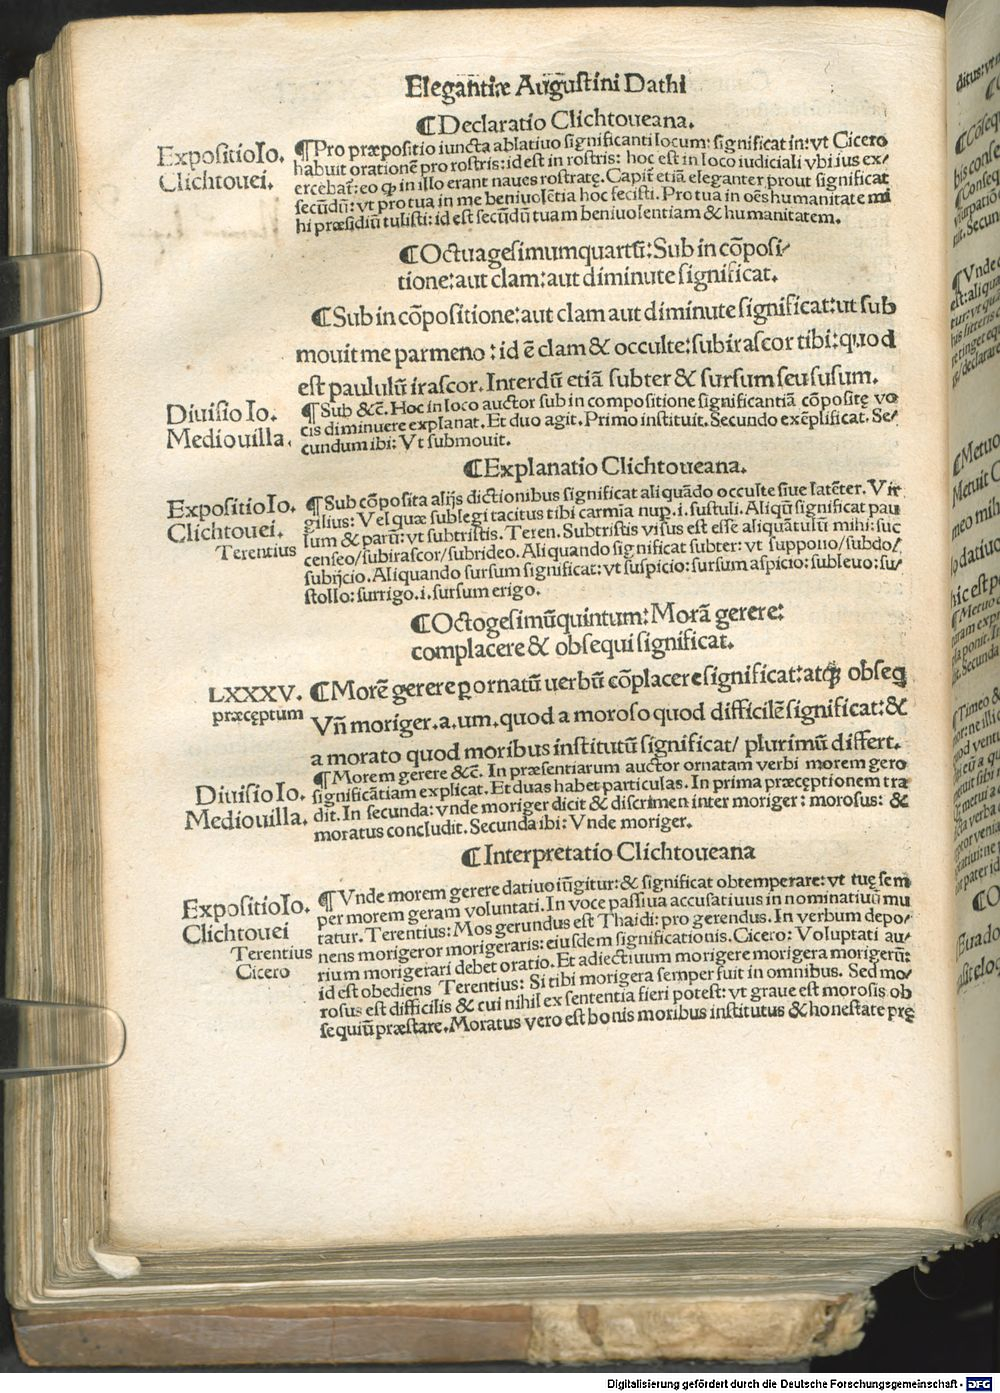 Elegantiæ Augustini Dathi
¶Declaratio Clichtoueana.
Expositio Io.
Clichtouei.
¶Pro præpositio iuncta ablatiuo significanti locum: significat in: vt Cicero
habuit orationẽ pro rostris: id est in rostris: hoc est in loco iudiciali vbi ius ex/
ercebat᷑: eo ꝙ in illo erant naues rostratę. Capit᷑ etiã eleganter prout significat
secũdũ: vt pro tua in me beniuolẽtia hoc fecisti. Pro tua in oẽs humanitate mi
hi præsidiũ tulisti: id est secũdũ tuam beniuolentiam & humanitatem.
¶Octuagesimumquartũ: Sub in cõposi/
tione: aut clam: aut diminute significat.
¶Sub in cõpositione: aut clam aut diminute significat: ut sub
mouit me parmeno: id ẽ clam & occulte: subirascor tibi: quod
est paululũ irascor. Interdũ etiã subter & sursum seu susum.
Diuisio Io.
Mediouilla.
¶Sub &c̃. Hoc in loco auctor sub in compositione significantiã cõpositę vo
cis diminuere explanat. Et duo agit. Primo instituit. Secundo exẽplificat. Se/
cundum ibi: Vt submouit.
¶Explanatio Clichtoueana.
Expositio Io.
Clichtouei.
Terentius
¶Sub cõposita alijs dictionibus significat aliquãdo occulte siue latẽter. Vir
gilius: Vel quæ sublegi tacitus tibi carmĩa nuꝑ. i. sustuli. Aliqũ significat pau
lum & parũ: vt subtristis. Teren. Subtristis visus est esse aliquãtulũ mihi: suc
censeo/subirascor/subrideo. Aliquando significat subter: vt suppono/subdo/
subijcio. Aliquando sursum significat: vt suspicio: sursum aspicio: subleuo: su/
stollo: surrigo. i. sursum erigo.
¶Octogesimũquintum: Morã gerere:
complacere & obsequi significat.
LXXXV.
præceptum
¶Morẽ gerere ꝑornatũ uerbũ cõplacere significat: atq᷒ obseq
Vñ moriger. a. um. quod a moroso quod difficilẽ significat: &
a morato quod moribus institutũ significat/ plurimũ differt.
Diuisio Io.
Mediouilla.
¶Morem gerere &c̃. In præsentiarum auctor ornatam verbi morem gero
significãtiam explicat. Et duas habet particulas. In prima præceptionem tra
dit. In secunda: vnde moriger dicit & discrimen inter moriger: morosus: &
moratus concludit. Secunda ibi: Vnde moriger.
¶Interpretatio Clichtoueana
Expositio Io.
Clichtouei
Terentius
Cicero
¶Vnde morem gerere datiuo iũgitur: & significat obtemperare: vt tuę sem
per morem geram voluntati. In voce passiua accusatiuus in nominatiuũ mu
tatur. Terentius: Mos gerundus est Thaidi: pro gerendus. In verbum depo/
nens morigeror morigeraris: eiusdem significationis. Cicero: Voluptati au/
rium morigerari debet oratio. Et adiectiuum morigere morigera morigerũ:
id est obediens Terentius: Si tibi morigera semper fuit in omnibus. Sed mo/
rosus est difficilis & cui nihil ex sententia fieri potest: vt graue est morosis ob
sequium præstare. Moratus vero est bonis moribus institutus & honestate prę
Digitalisierung gefördert durch die Deutsche Forschungsgemeinschaft - DFG